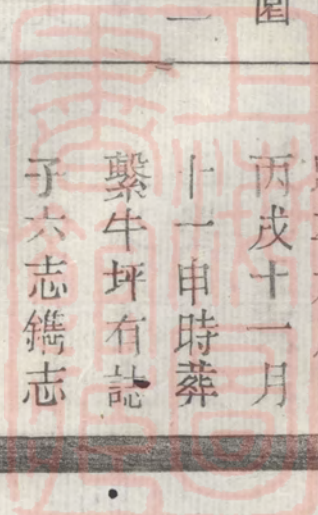 丙戌十一月
十一申時葬
繫牛坪有誌
子六志鐫志